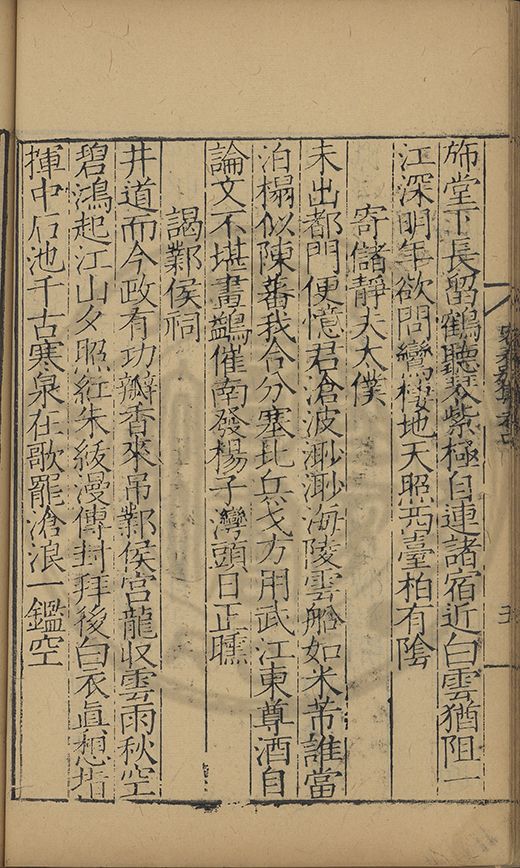 堂下長留鶴聽琴紫極自連諸宿近白雲猶阻一
江深明年欲問鸞棲地天照西臺柏有陰
寄儲靜夫太僕
未出都門便憶君滄波渺渺海陵雲船如米芾誰當
泊榻似陳蕃我合分塞北兵戈方用武江東尊酒自
論文不堪畫鷁催南發楊子灣頭日正曛
謁鄴侯祠
井道而今政有功瓣香來吊鄴侯宮龍収雲雨秋空
碧鴻起江山夕照紅朱紱漫傳封拜後白衣眞想指
揮中石池千古寒泉在歌罷滄浪一鑑空